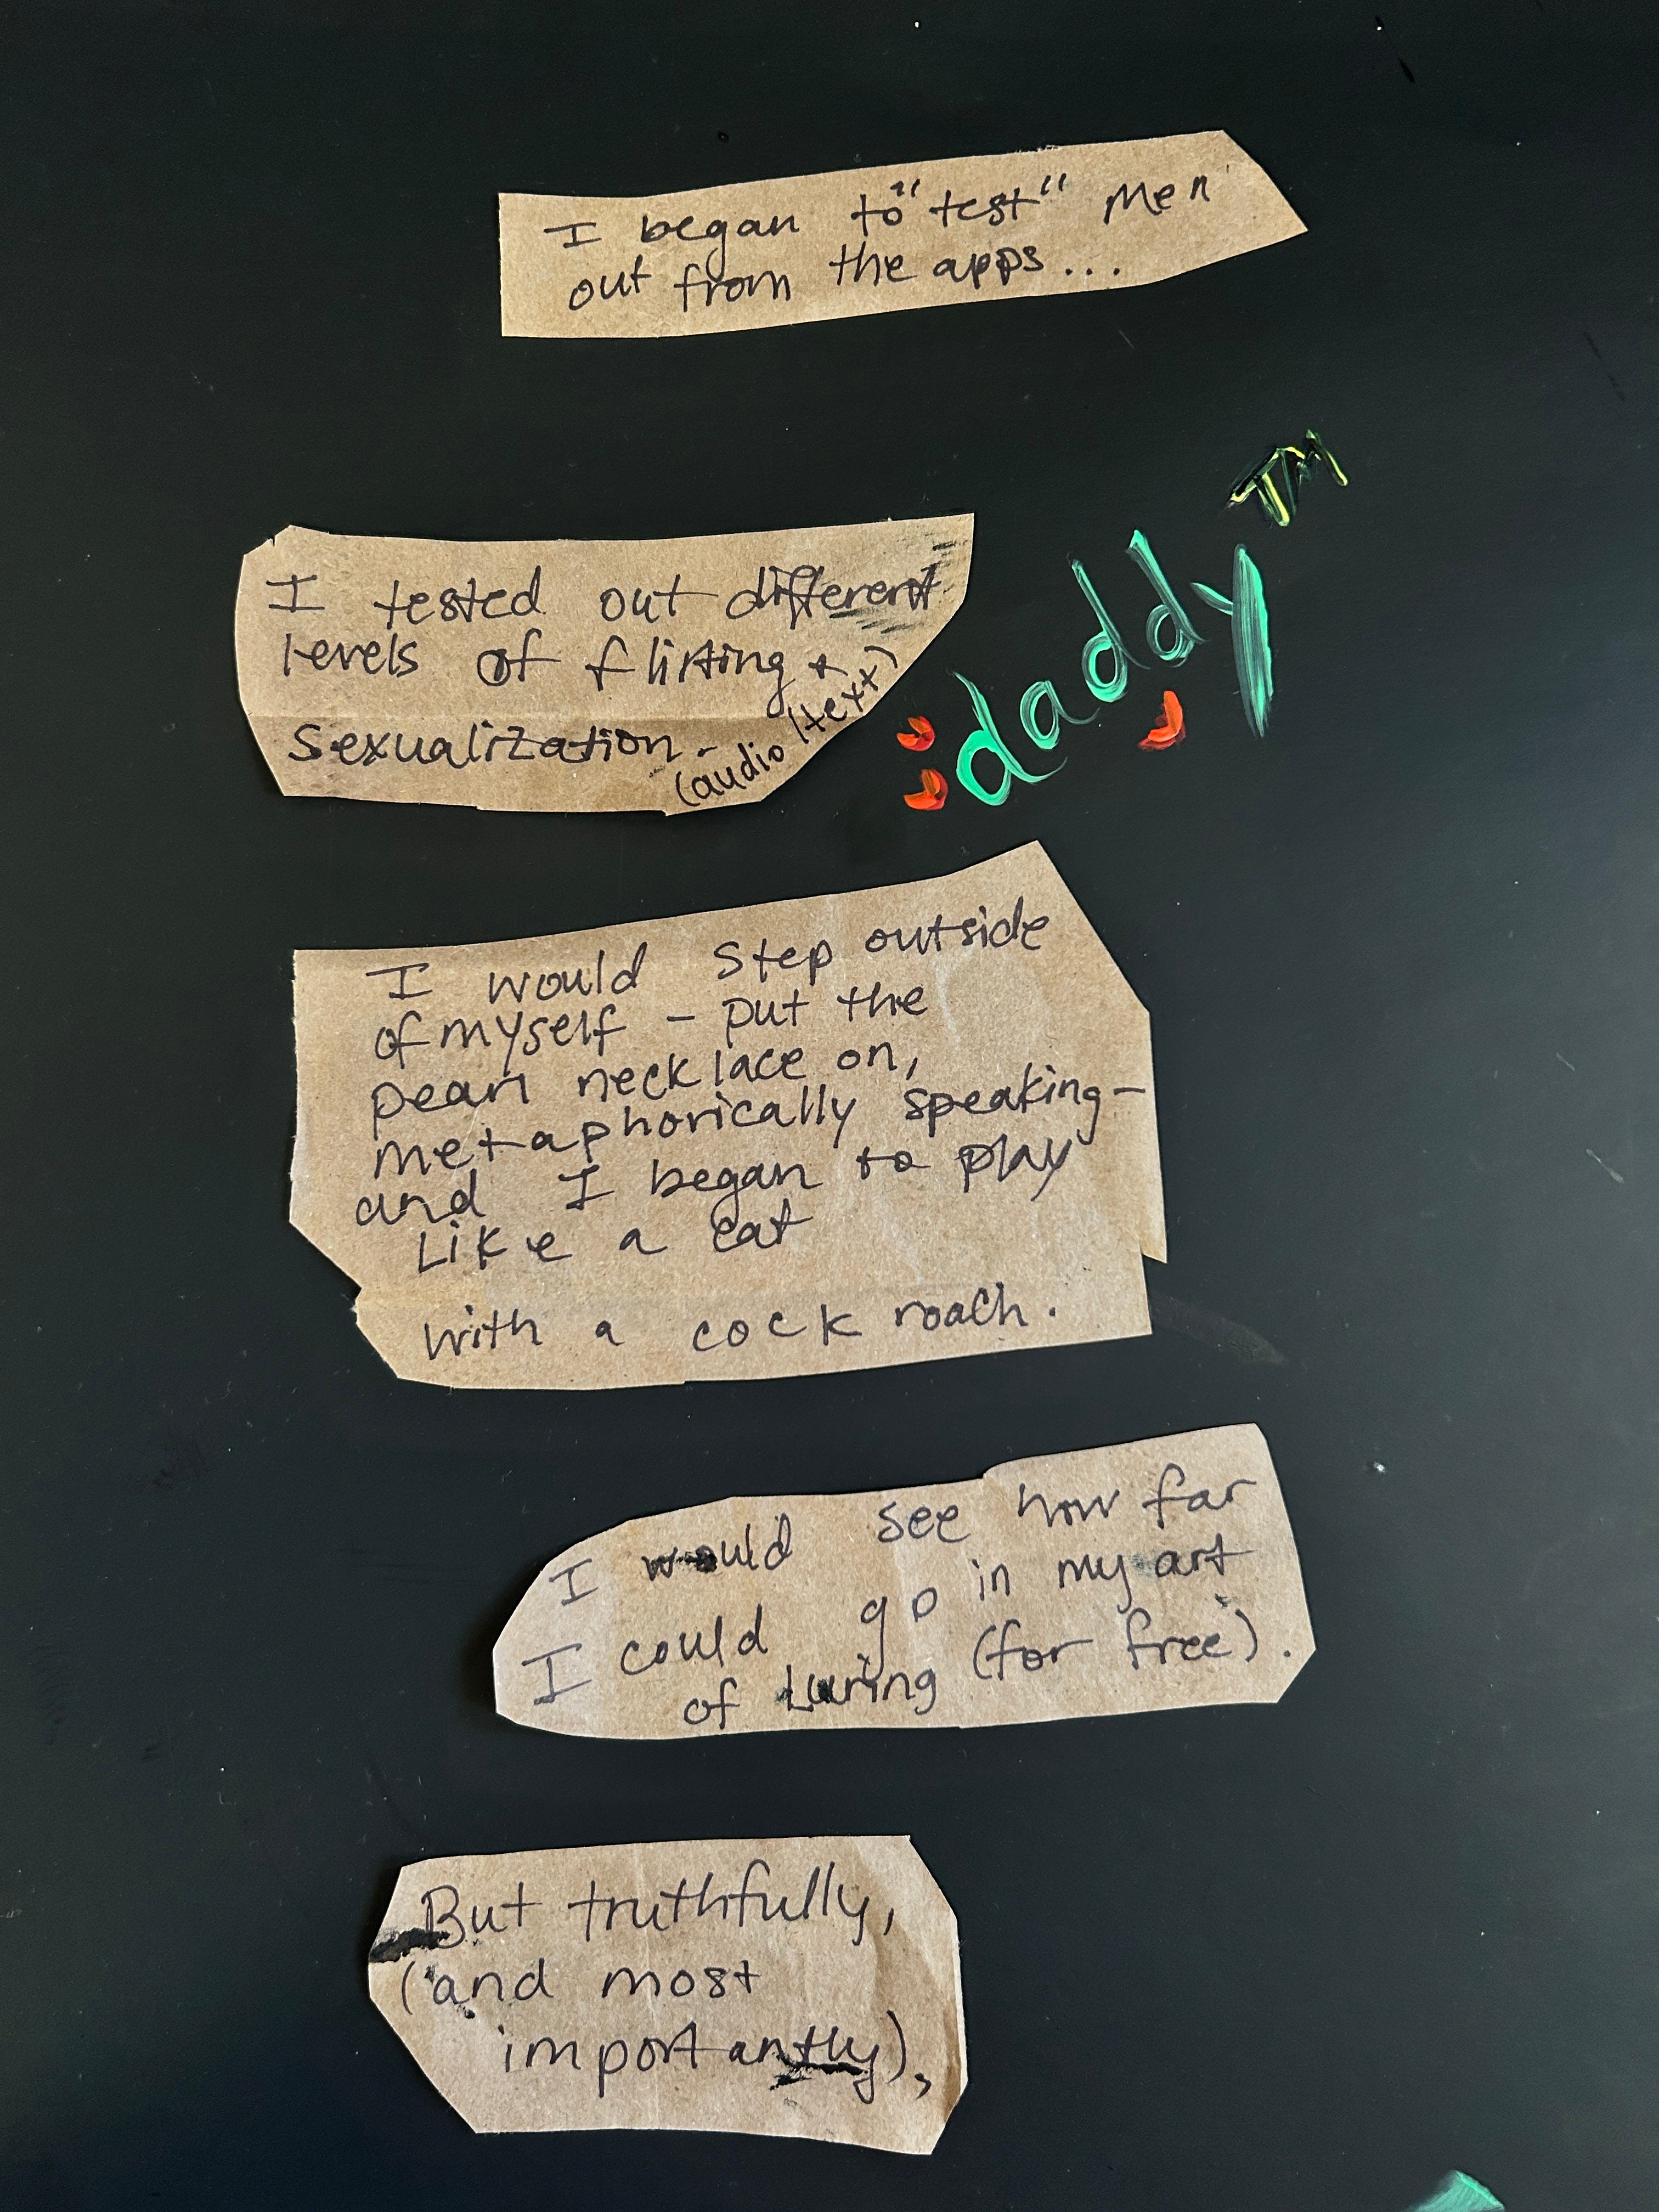 I began to "test" men
out from the apps...
TM
I tested out different
levels of flirting +
sexualization - (audio/text)
daddy
I would step outside
of myself - put the
pearl necklace on,
metaphorically speaking -
and I began to play
Like a cat
with a cock roach.
I would see how far
I could go in my art
of Luring (for free).
But truthfully,
(and most
importantly),